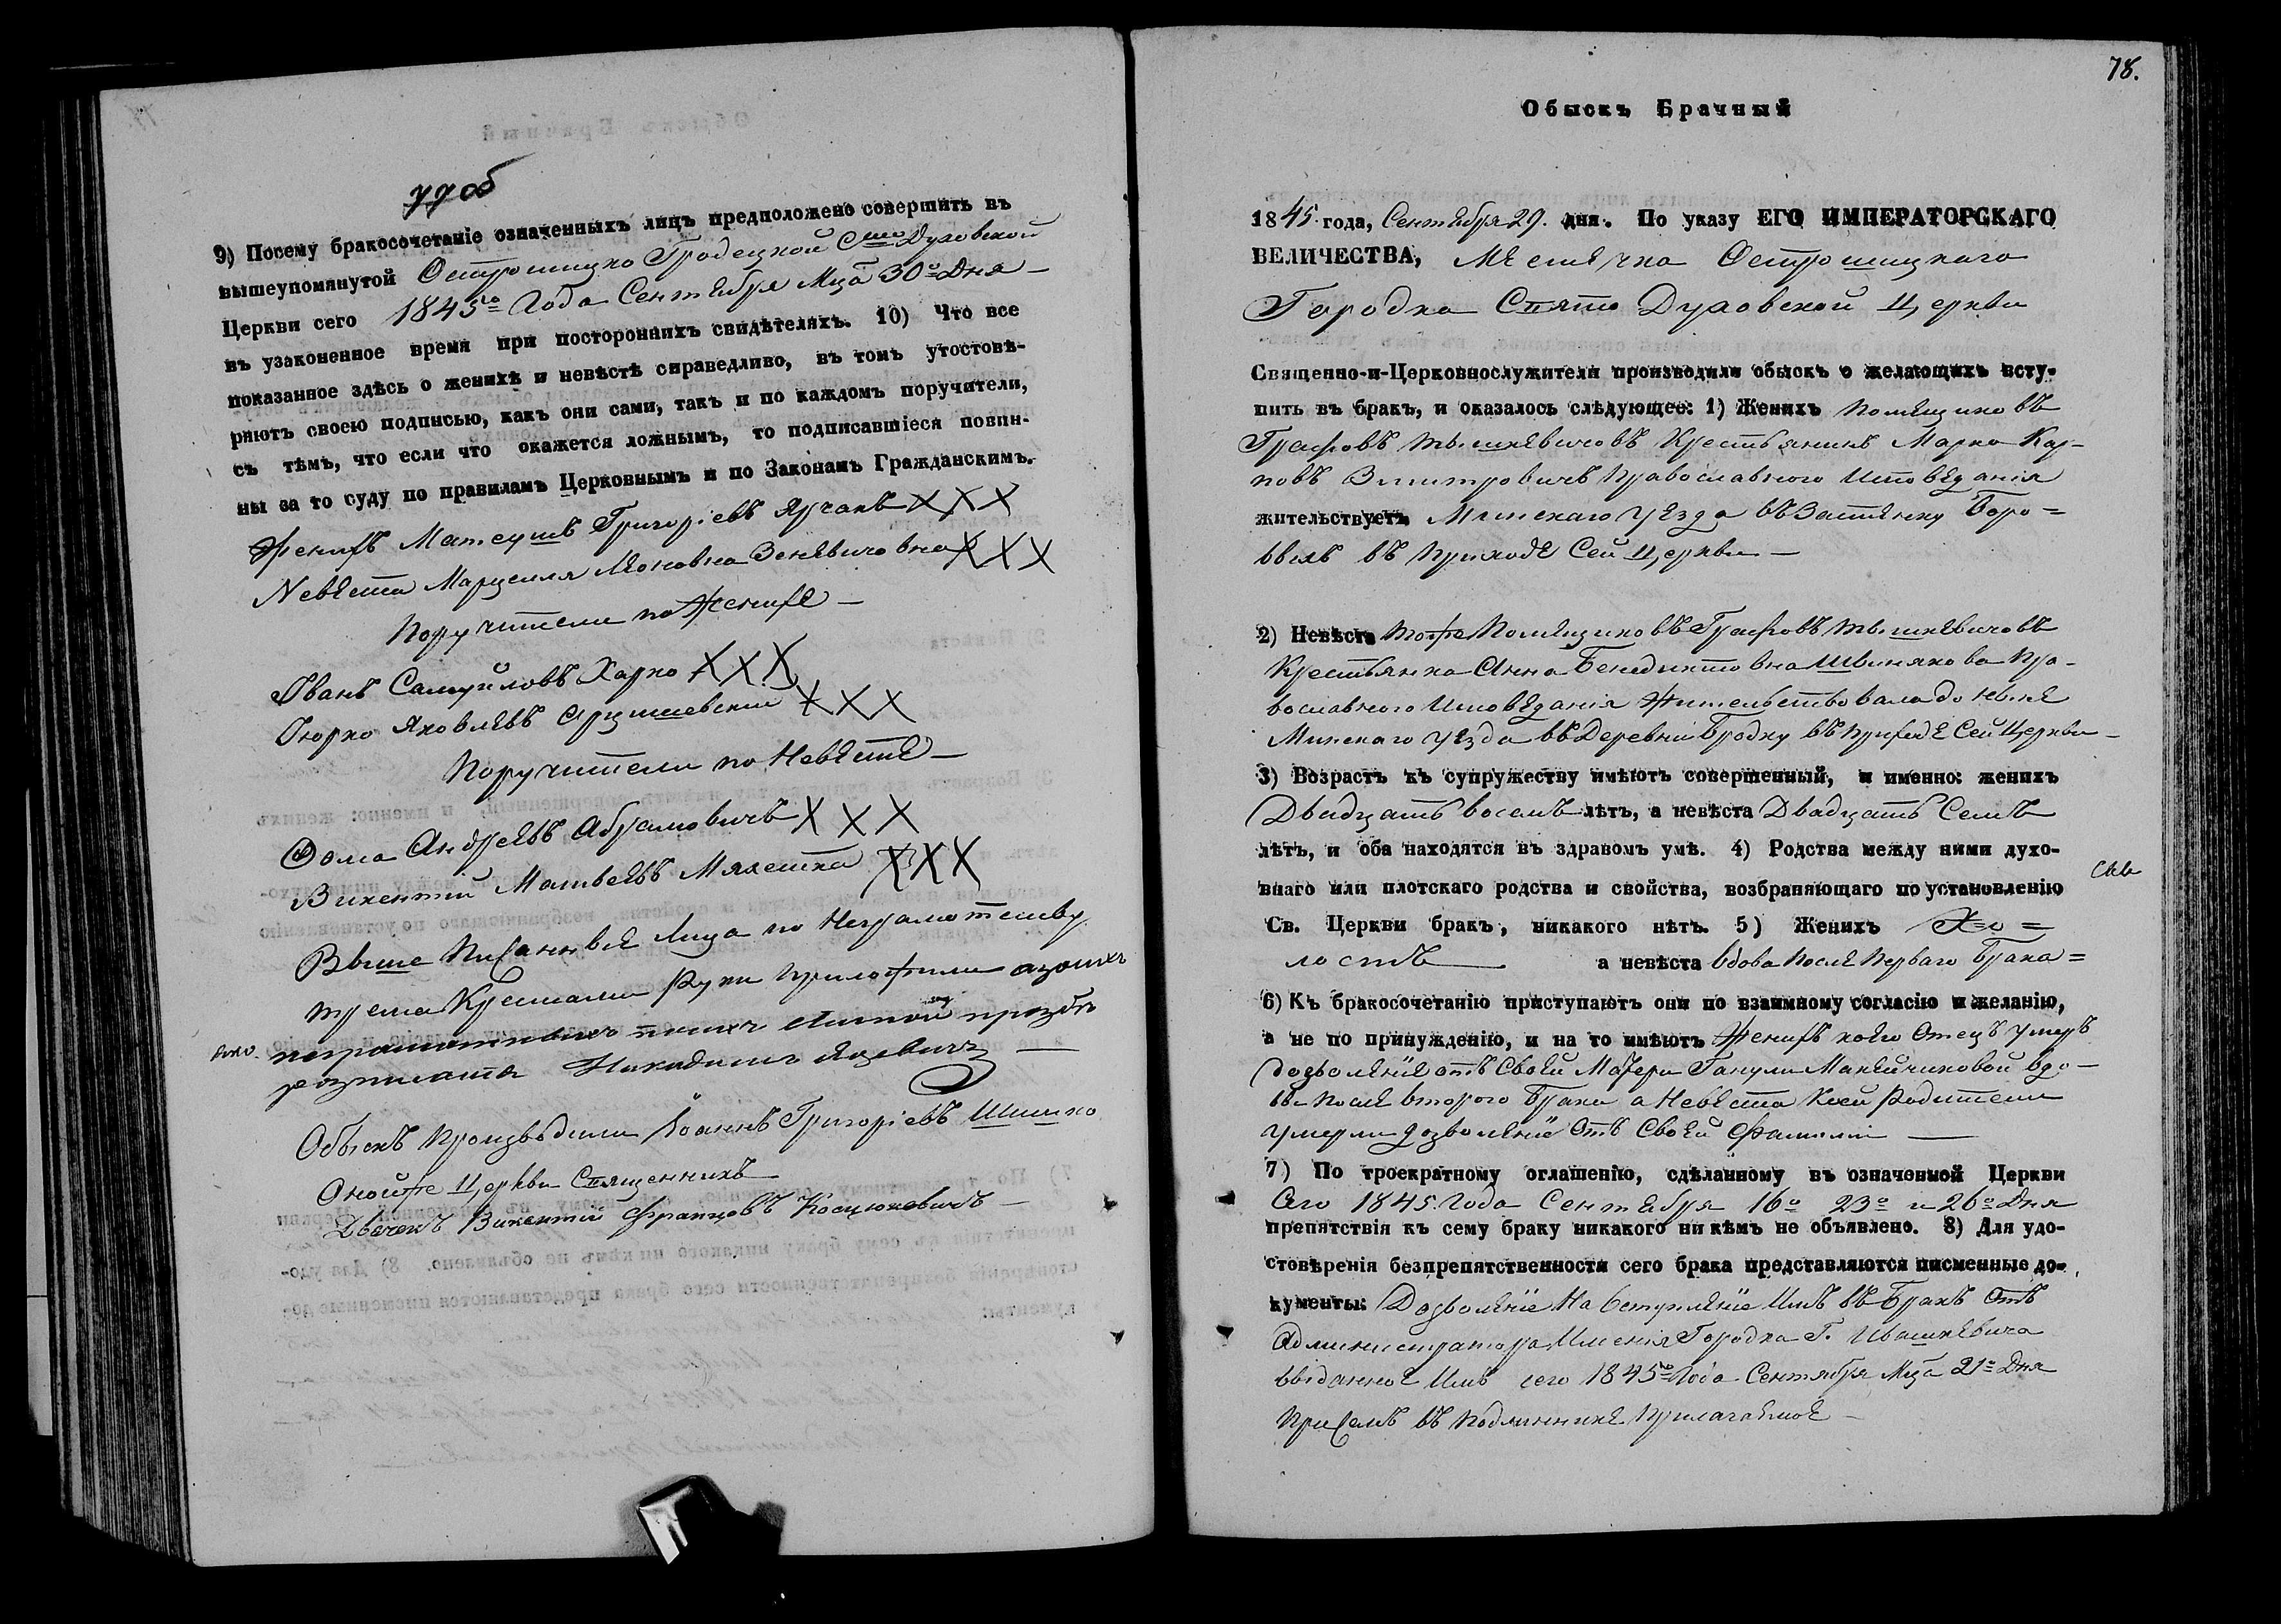 79 об
9) Посему бракосочетаніе означенныхъ лицъ предположено совершить въ
вышеупомянутой Острошицко Градецкой Сто Духовской
Церкви сего 1845го Года Сентября Мца 30о Дня
въ узаконенное время при постороннихъ свидѣтеляхъ. 10) Что все
показанное здѣсь о женихѣ и невѣстѣ справедливо, въ томъ утостовѣ-
ряютъ своею подписью, какъ они сами, такъ и по каждомъ поручители,
съ тѣмъ, что если что окажется ложнымъ, то подписавшіеся повин-
ны за то суду по правиламъ Церковнымъ и по Законамъ Гражданскимъ.
Женихъ Матеушъ Григоріевъ Ярчакъ ХХХ
Невѣста Марцеля Леоновна Зенѣвичовна ХХХ
Поручители по Женихѣ
Иванъ Самуйловъ Харко ХХХ
Юрко Яковлѣвъ Аришевскій ХХХ
Поручители по Невѣстѣ
Фома Андрѣевъ Абрамовичъ ХХХ
Викентій Матвеѣвъ Махетка ХХХ
Выше Писанныѣ Лица по Неграмотству
трема Крестами Руки Приложили азанихъ
неграмотныхъ
росписался Никадимъ Яцевичъ
Обыскъ Производили Іоаннъ Григоріевъ Шишко
Оной же Церкви Священникъ
Дьячекъ Викентій Францовъ Косцюкевичъ
78.
Обыскъ Брачный
1845. года, Сентября 29. дня. По указу ЕГО ИМПЕРАТОРСКАГО
ВЕЛИЧЕСТВА, Мѣстѣчка Острошицкаго
Городка Свято Духовской Церкви
Священно-и-Церковнослужители производили обыскъ о желающихъ всту-
пить въ бракъ, и оказалось слѣдующее: 1) Женихъ Помѣщиковъ
Графовъ Тышкѣвичовъ Крестьянинъ Марко Кар-
повъ Змитровичъ Православного Исповѣданія
жительствуетъ Минскаго Уѣзда въ Застѣнку Боро=
выхъ въ Приходѣ Сей Церкви
2) Невѣста тожѣ Помѣщиковъ Графовъ Тышкѣвичовъ
Крестьянка Анна Бенедиктовна Швинякова Пра-
вославного Исповѣданія Жительствовала до Нынѣ
Минскаго Уѣзда въ Деревни Бродку въ Приходѣ Сей Церкви
3) Возрастъ къ супружеству имѣютъ совершенный, и именно: женихъ
Двадцать восемъ лѣтъ, а невѣста Двадцать Семъ
лѣтъ, и оба находятся въ здравомъ умѣ. 4) Родства между ними духо-
внаго или плотскаго родства и свойства, возбраняющаго по установленію
Св. Церкви бракъ, никакого нѣтъ. 5) Женихъ Хо=
лостъ а невѣста вдова После Перваго Брака=
6) Къ бракосочетанію приступаютъ они по взаимному согласію и желанію,
а не по принуждению, и на то имѣютъ Женихъ коего Отецъ Умеръ
дозволѣніе отъ Своей Матери Ганули Макѣйчиковой вдо-
вы После втораго Брака а Невѣста Коей Родители
умерли дозволѣніе Отъ Своѣй Фамиліи
7) По троекратному оглашенію, сдѣланному въ означенной Церкви
Сего 1845. Года Сентября 16о 23о и 26о Дня
препятствія къ сему браку никакого ни кѣмъ не объявлено. 8) Для удо-
стовѣренія безпрепятственности сего брака представляются писменные до-
кументы: Дозволѣніе На вступлѣніе Имъ въ Бракъ Отъ
Администратора Имѣнія Городка Г. Ивашкѣвича
выданноѣ Имъ сего 1845го Года Сентября Мца 21о Дня
При Семъ въ Подлинникѣ Прилагаѣмоѣ